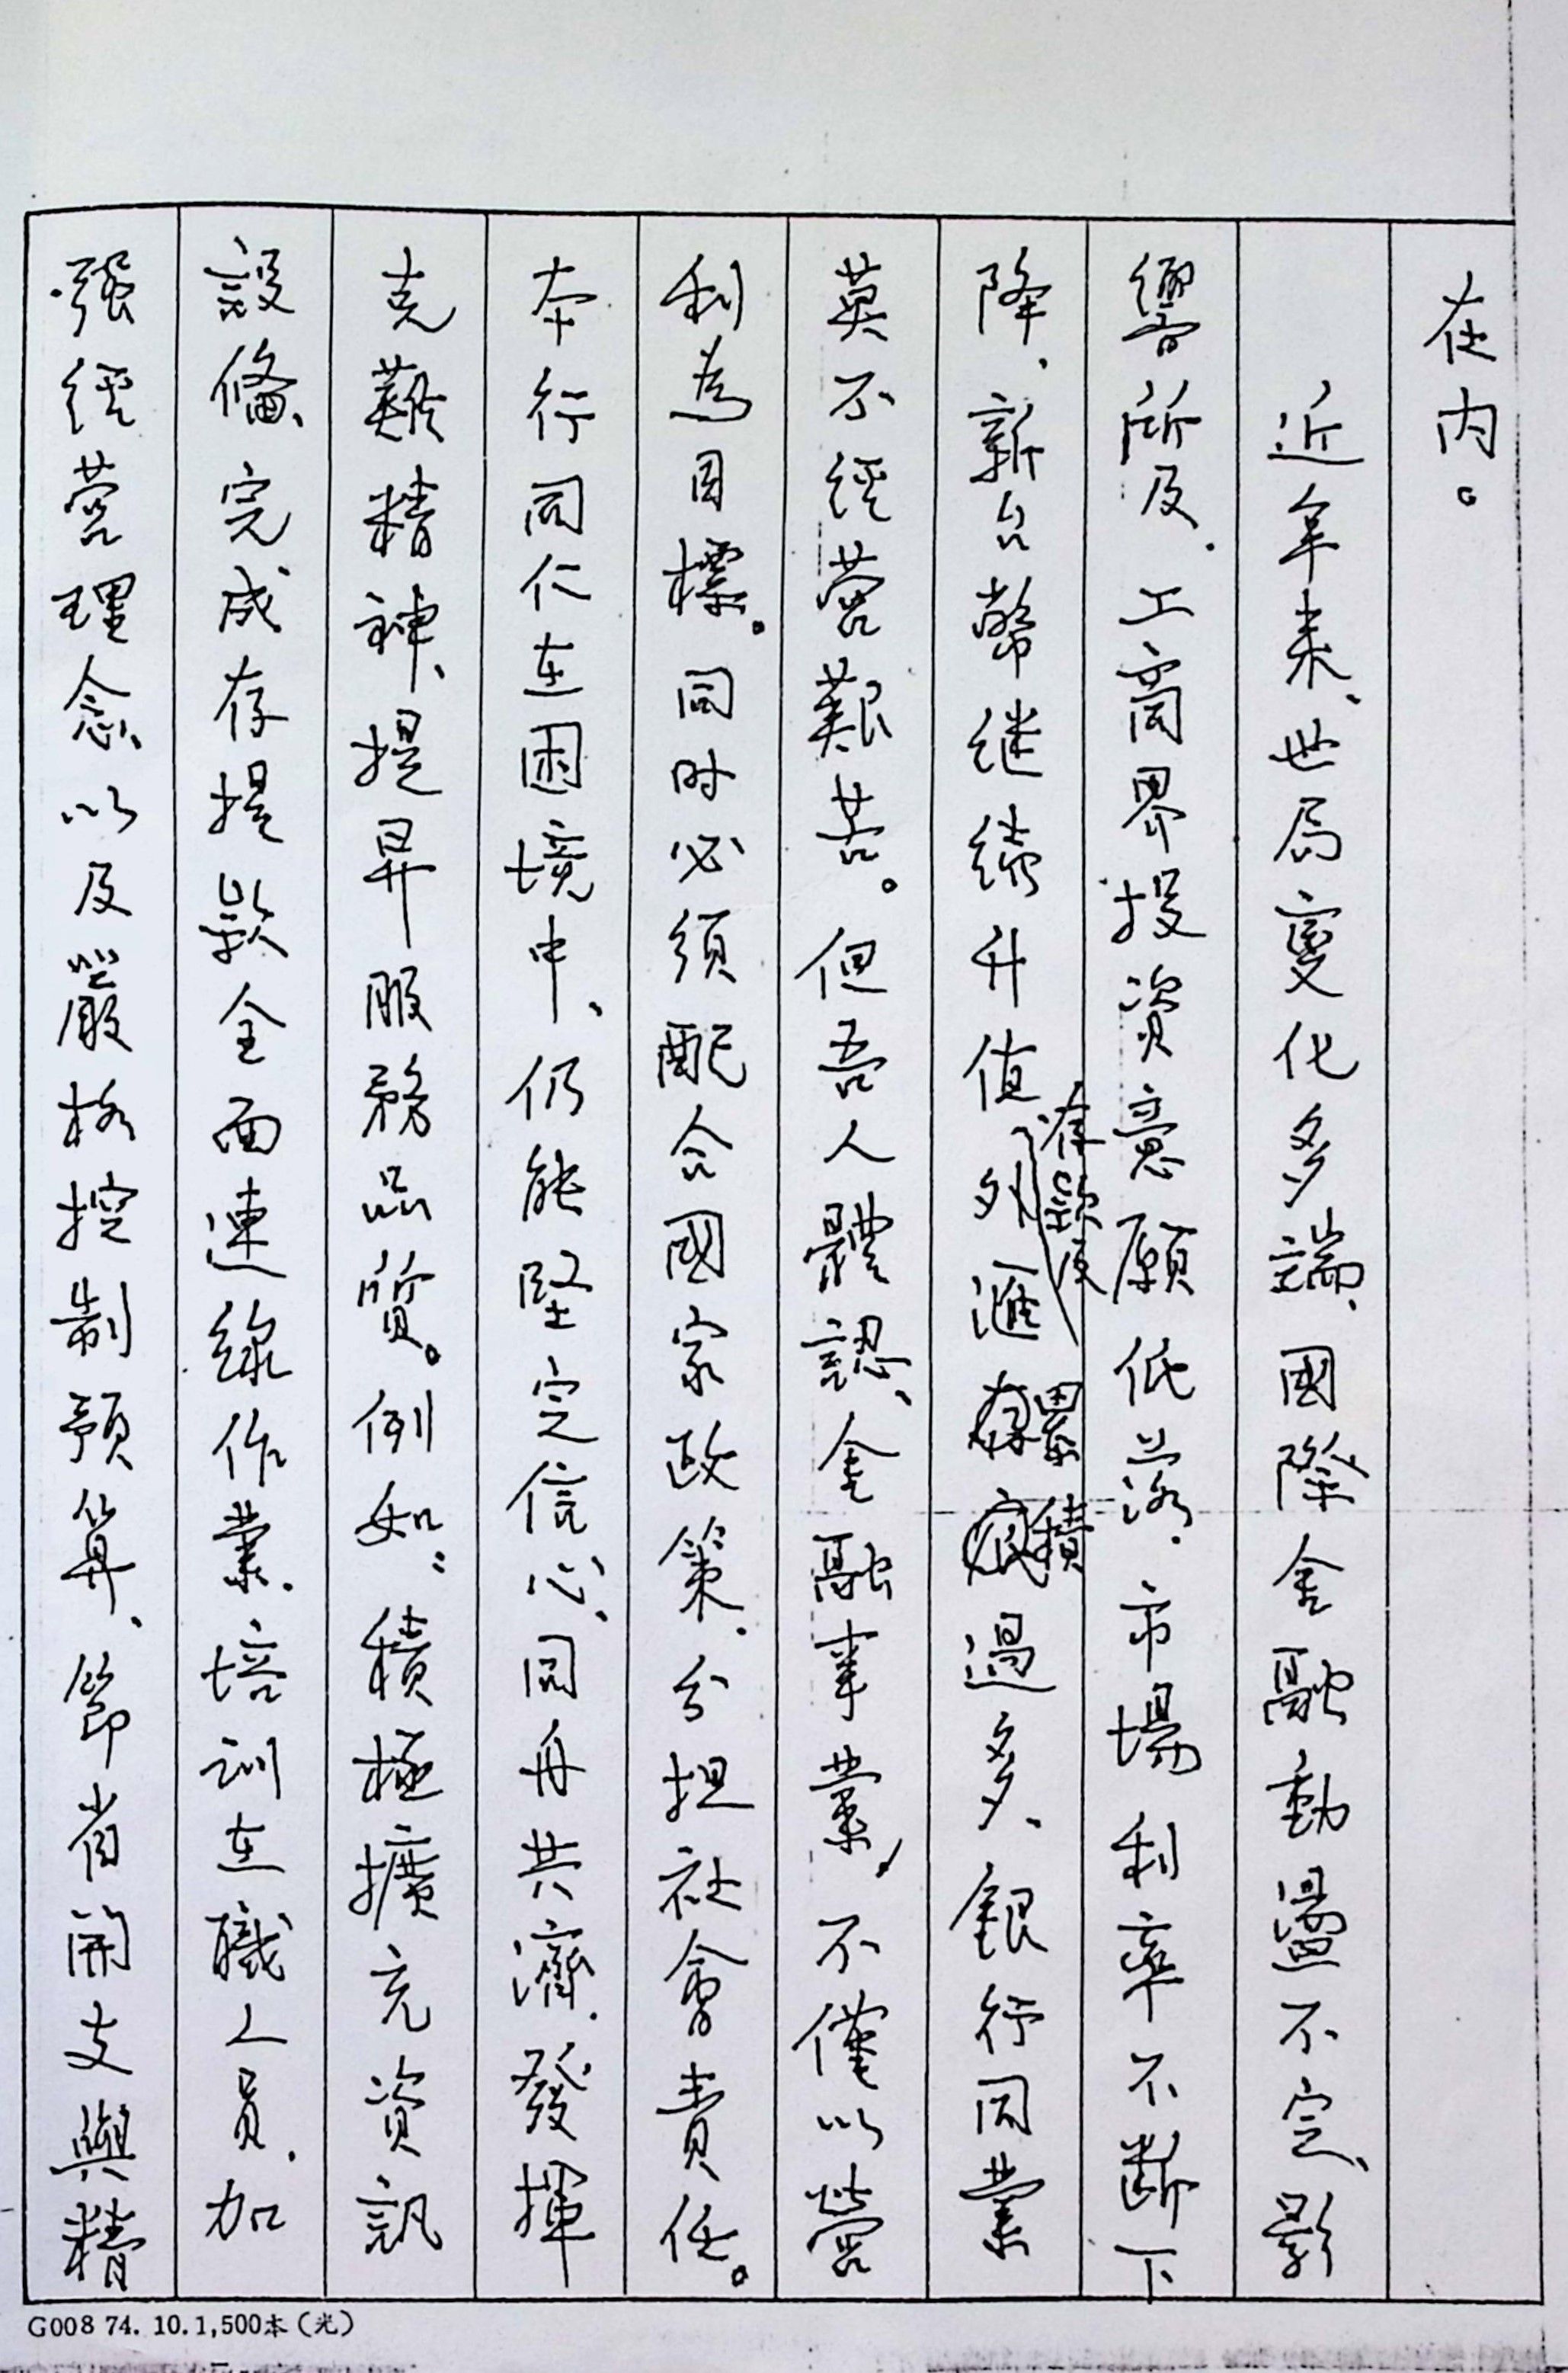 在內。
近年來、世局變化多端、國際金融動盪不定、影
響所及、工商界投資意願低落、市場利率不斷下
降、新台幣继续升值外滙累積過多、銀行同業
莫不經營艱苦。但吾人體認、金融事業、不僅以營
利為目標。同时必須配合國家政策、分担社會責任。
本行同仁在困境中、仍能堅定信心、同舟共濟、發揮
克難精神、提昇服務品質。例如：積極擴充資訊
設備、完成存提款全面連線作業、培訓在職人員、加
强經營理念、以及嚴格控制預算、節省開支與精
G008 74. 10. 1,500本(光)